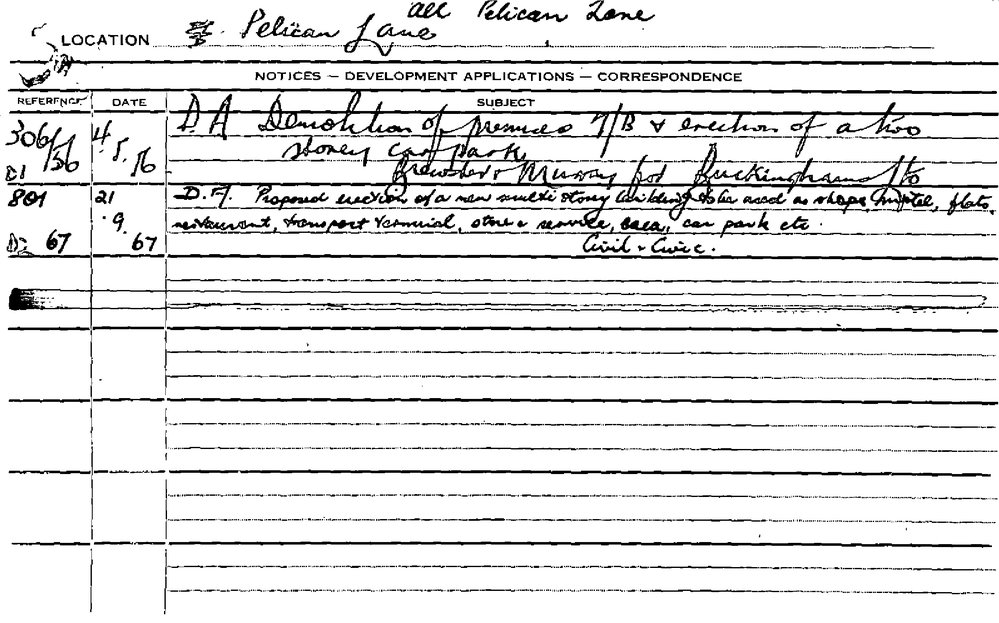 all Pelican Lane
LOCATION Pelican Lane
NOTICES — DEVELOPMENT APPLICATIONS — CORRESPONDENCE
REFERENCE DATE SUBJECT
306/56 4 5 56 DA Demolition of premises 7/B & erection of a two
storey car park
D1 Brewster & Murray for Buckinghams
801 21 D.A. Proposed erection of a new multi story building to be used as shops, flats,
restaurant, transport terminal, store & service, area, car park etc.
67 9 67 Civil & Civic.